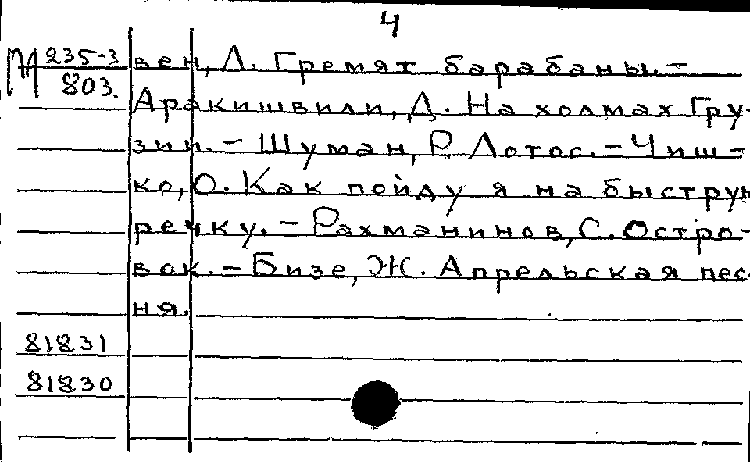 4
М 235-3
803.
вен, Л. Гремят барабаны. –
Аракишвили, Д. На холмах Гру-
зии. – Шуман, Р. Лотос. – Чиш-
ко, О. Как пойду я на быструю
речку. – Рахманинов, С. Остро-
вок. – Бизе, Ж. Апрельская пес
ня.
81831
81830